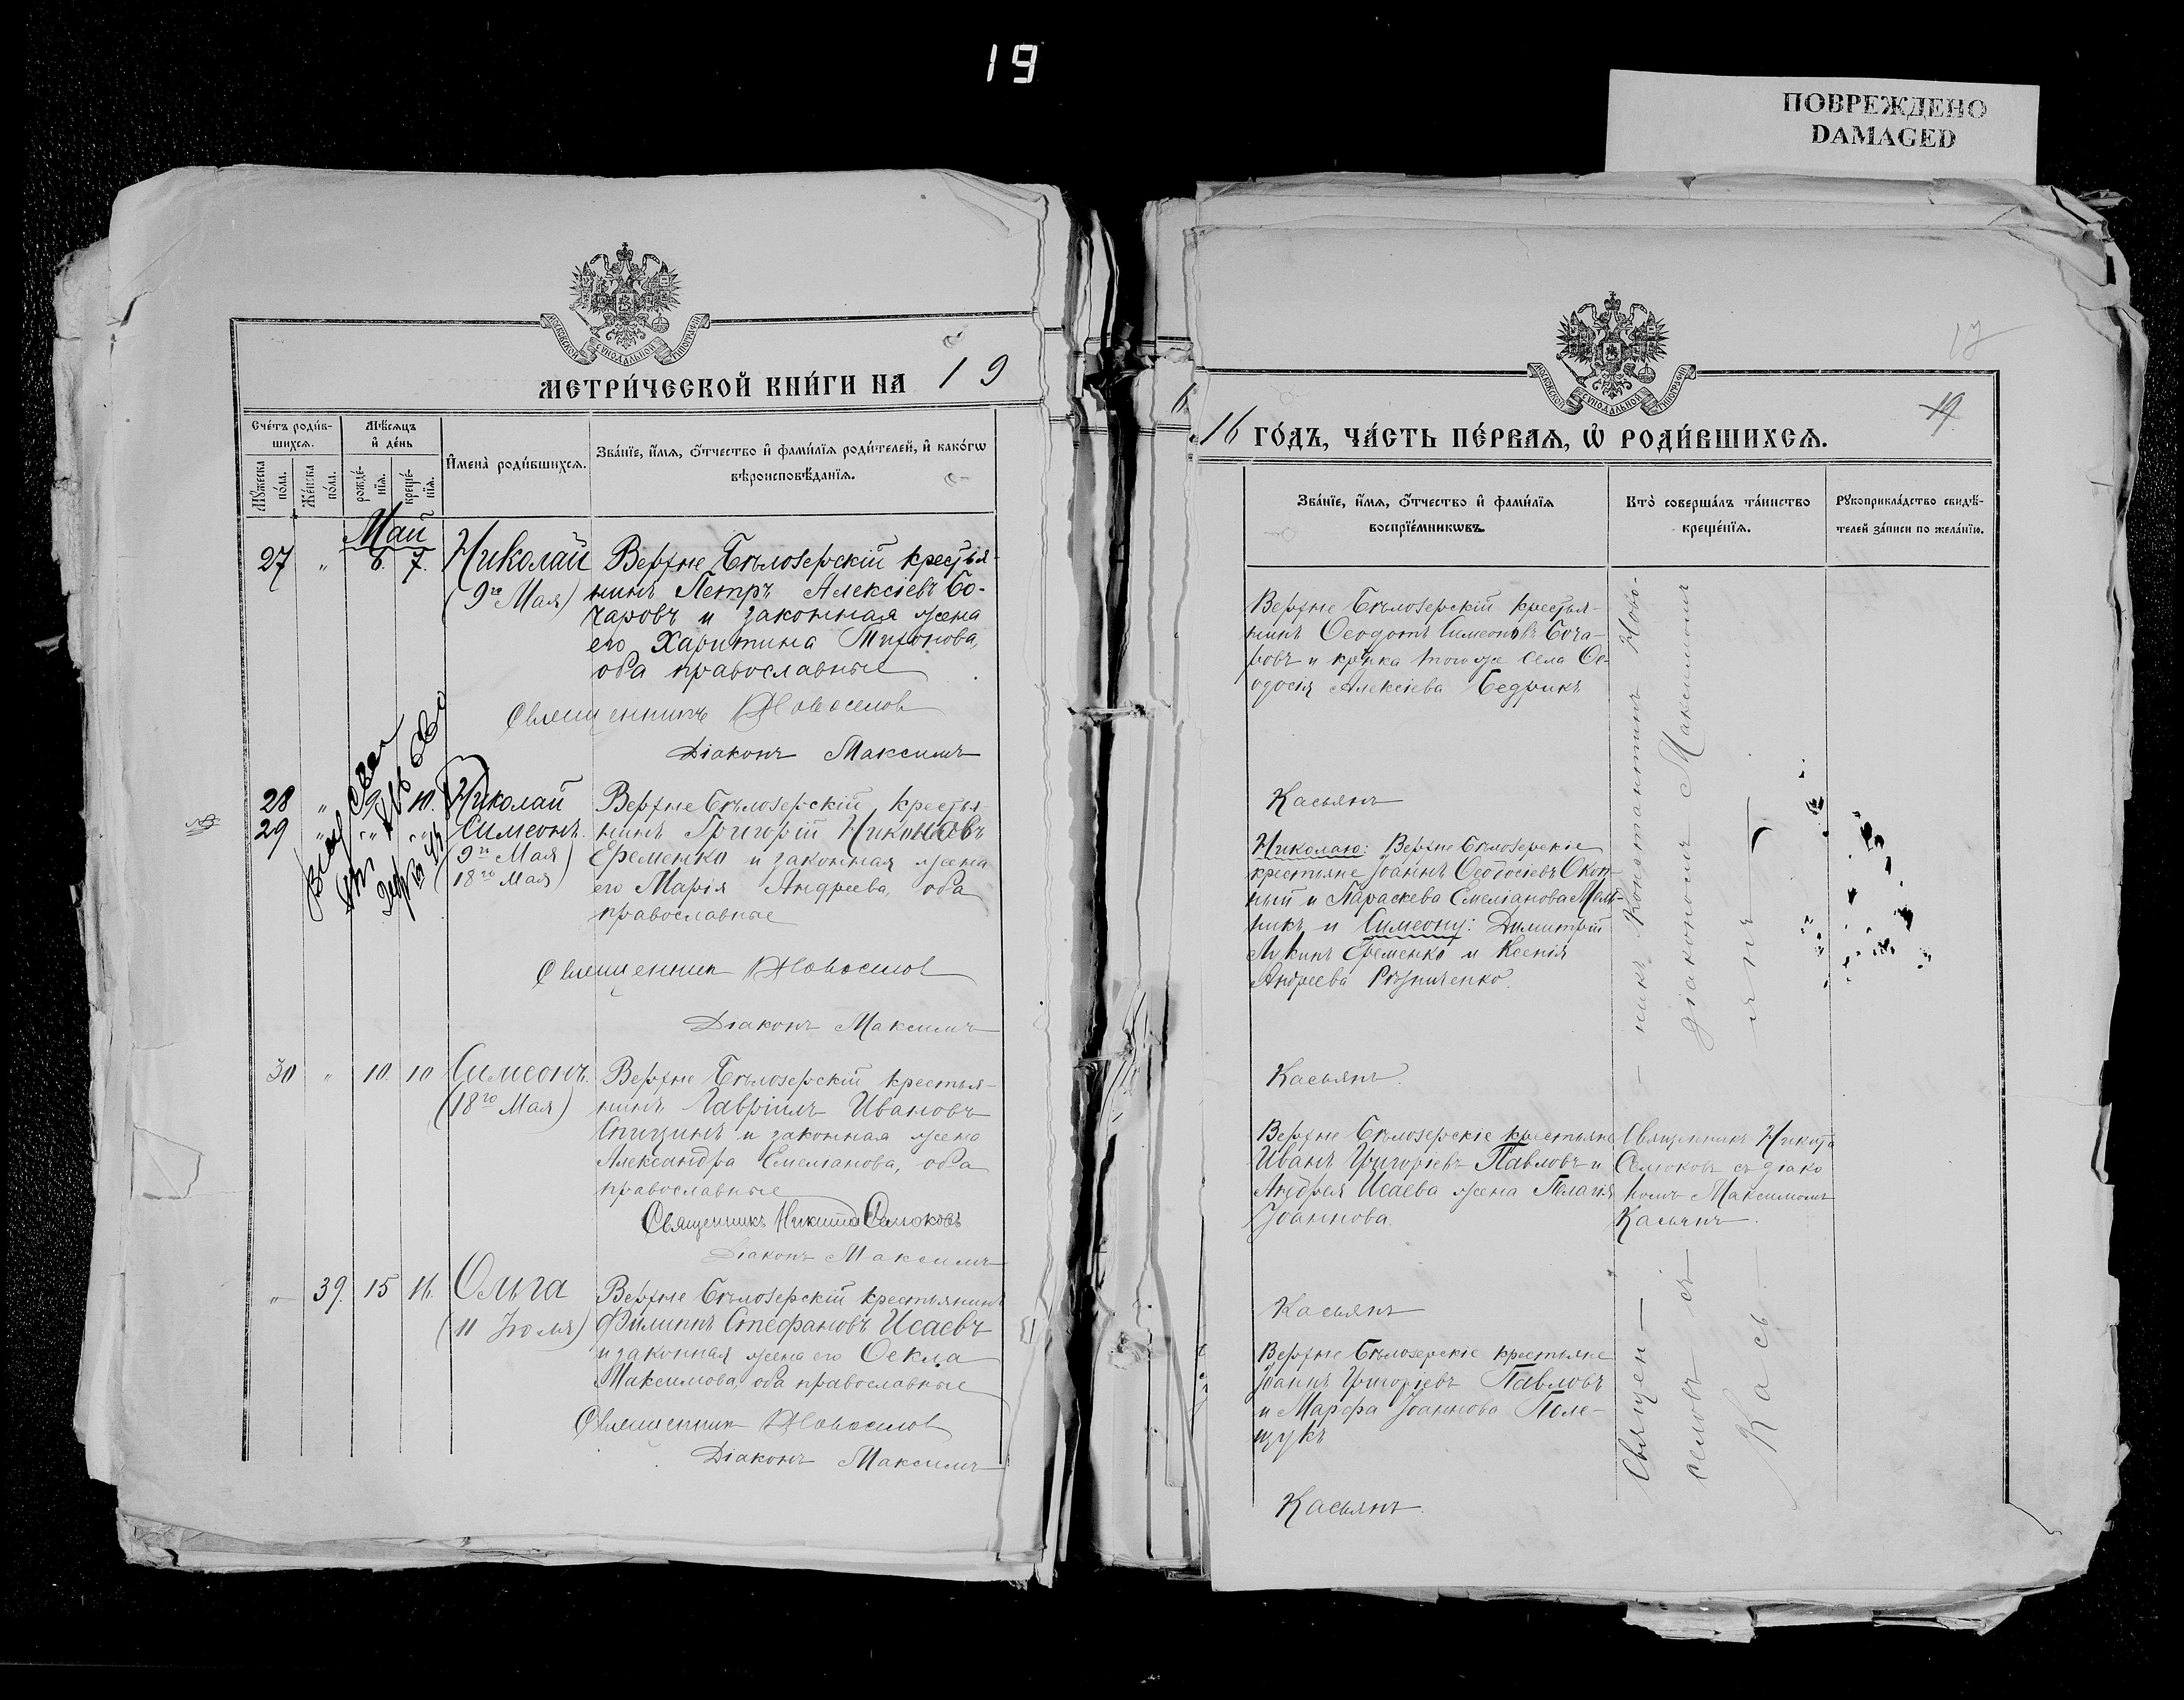 19
ПОВРЕЖДЕНО
DAMAGED
МОСКОВСКОЙ СѴНОДАЛЬНОЙ ТИПОГРАФІИ
МЕТРИ́ЧЕСКОЙ КНИ́ГИ НА 19
Сче́тъ роди́в-
шихся.
Мѣ́сяцъ
и҆ де́нь
Мꙋ́жеска
по́ла.
Же́нска
по́ла.
рожде́-
нїя.
креще́-
нїя.
И҆мена̀ роди́вшихся.
Зва́нїе, и҆́мя, ѻ҆́тчество и҆ фами́лїя роди́телей, и҆ како́гѡ
вѣроисповѣ́данїя.
Май
27 " 6. 7. Николай
(9го Мая)
Верхне Бѣлозерскій крестья-
нинъ Петръ Алексіевъ Бо-
чаровъ и законная жена
его Харитина Тихонова,
оба православные
Священникъ Новоселов
Діаконъ Максимъ
28 " 10. Николай
29 " " Симеонъ.
(9го Мая)
(18го Мая)
Верхне Бѣлозерскій крестья-
нинъ Григорій Никоновъ
Еременко и законная жена
его Марія Андреева, оба
православные
Священник Новоселов
Діаконъ Максимъ
30 " 10. 10 Симеонъ.
(18го Мая)
Верхне Бѣлозерскій крестья-
нинъ Гавріилъ Ивановъ
Спицинъ и законная жена
Александра Емеліанова, оба
православные
Священникъ Никита Самоковъ
Діаконъ Максимъ
" 39. 15 16. Ольга
(11 Іюля)
Верхне Бѣлозерскій крестьянинъ
Филиппъ Стефановъ Исаевъ
и законная жена его Ѳекла
Максимова, оба православные
Священник Новоселов
Діаконъ Максимъ
17
19
МОСКОВСКОЙ СѴНОДАЛЬНОЙ ТИПОГРАФІИ
16 ГО́ДЪ, ЧА́СТЬ ПЕ́РВАЯ, Ѡ҆ РОДИ́ВШИХСЯ.
Зва́нїе, и҆́мя, ѻ҆́тчество и҆ фами́лїя
воспрїе́мникѡвъ.
Кто̀ соверша́лъ та́инство
креще́нїя.
Рꙋкоприкла́дство свидѣ́-
телей за́писи по жела́нїю.
Верхне Бѣлозерскій крестья-
нинъ Ѳеодотъ Симеоновъ Боча-
ровъ и кр-нка того же села Ѳе-
одосія Алексіева Бедрикъ
Касьянъ
Николаю: Верхне Бѣлозерскіе
крестьяне Іоаннъ Ѳеодосіевъ Окон-
ный и Параскева Емеліанова Мель-
никъ и Симеону: Димитрій
Лукинъ Еременко и Ксенія
Андреева Рѣзниченко.
Касьянъ.
Верхне Бѣлозерскіе крестьяне
Иванъ Григоріевъ Павловъ и
Андрея Исаева жена Пелагія
Іоаннова.
Священникъ Никита
Самоковъ съ діако
номъ Максимомъ
Касьянъ.
Касьянъ
Верхне Бѣлозерскіе крестьяне
Іоаннъ Григоріевъ Павловъ
и Марфа Іоаннова Поле-
щукъ
Касьянъ.
Священ — никъ Константинъ Ново-
селовъ съ діакономъ Максимомъ
Кась — янъ